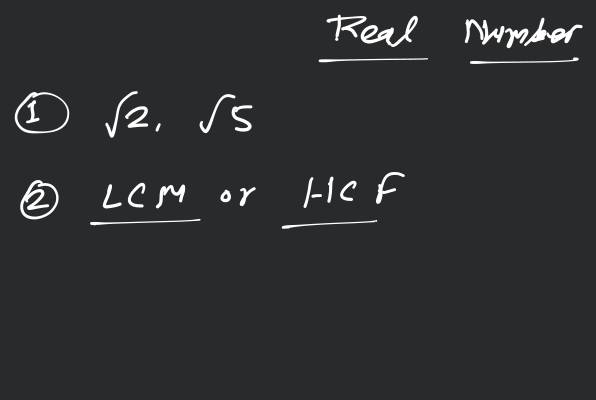 Real Number
① √2, √5
② LCM or HCF